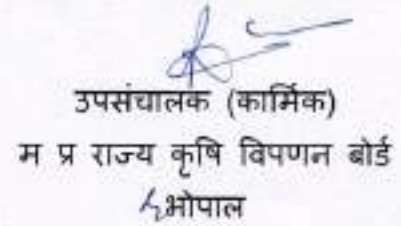 उपसंचालक (कार्मिक)
म प्र राज्य कृषि विपणन बोर्ड
भोपाल